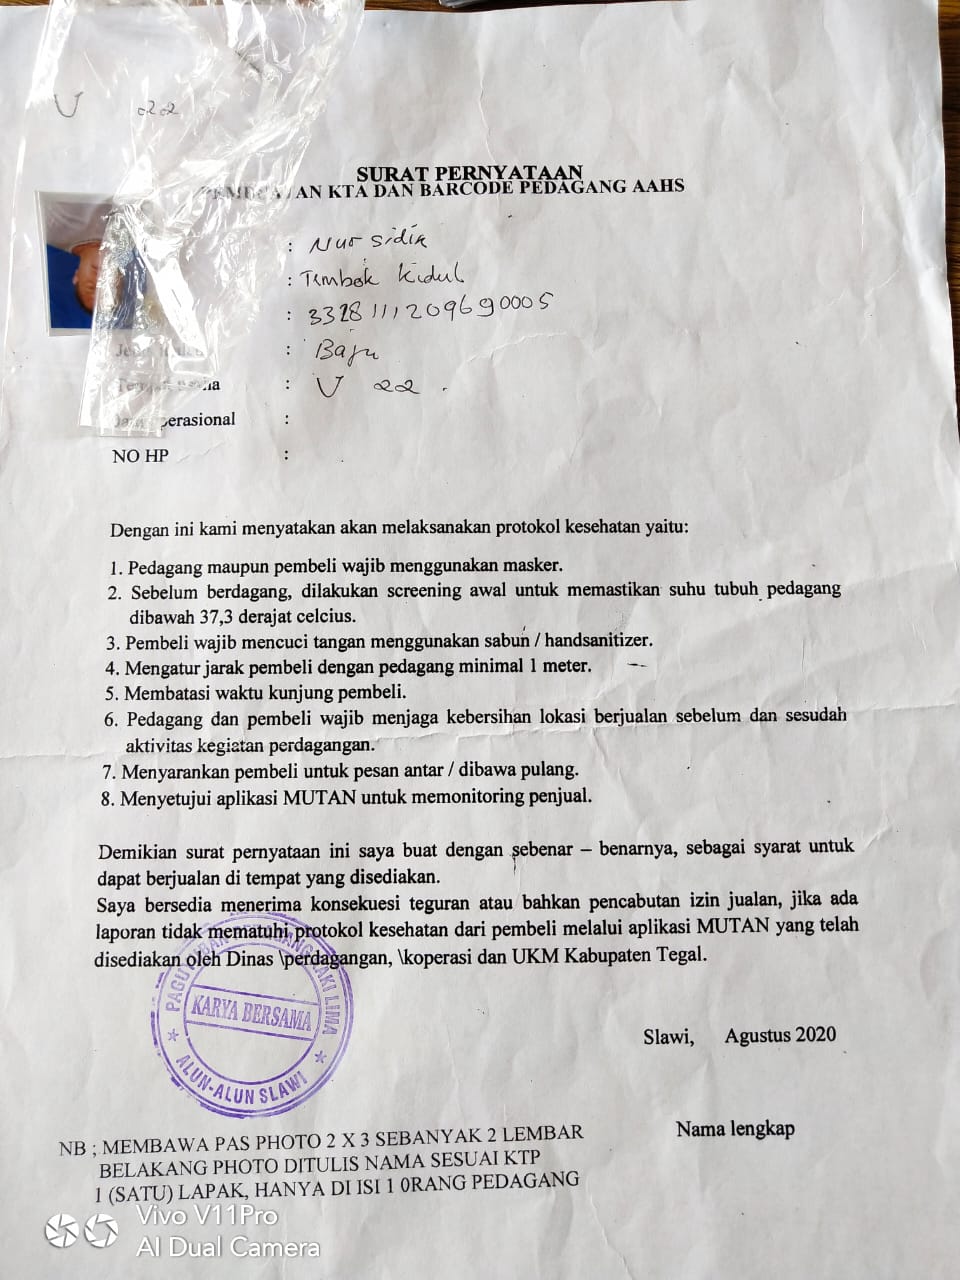 U 22
SURAT PERNYATAAN
KTA DAN BARCODE PEDAGANG AAHS
: Nur sidik
: Tembok Kidul
: 3328111209690005
: Baju
: U 22
NO HP :
Dengan ini kami menyatakan akan melaksanakan protokol kesehatan yaitu:
1. Pedagang maupun pembeli wajib menggunakan masker.
2. Sebelum berdagang, dilakukan screening awal untuk memastikan suhu tubuh pedagang
dibawah 37,3 derajat celcius.
3. Pembeli wajib mencuci tangan menggunakan sabun / handsanitizer.
4. Mengatur jarak pembeli dengan pedagang minimal 1 meter.
5. Membatasi waktu kunjung pembeli.
6. Pedagang dan pembeli wajib menjaga kebersihan lokasi berjualan sebelum dan sesudah
aktivitas kegiatan perdagangan.
7. Menyarankan pembeli untuk pesan antar / dibawa pulang.
8. Menyetujui aplikasi MUTAN untuk memonitoring penjual.
Demikian surat pernyataan ini saya buat dengan sebenar – benarnya, sebagai syarat untuk
dapat berjualan di tempat yang disediakan.
Saya bersedia menerima konsekuesi teguran atau bahkan pencabutan izin jualan, jika ada
laporan tidak mematuhi protokol kesehatan dari pembeli melalui aplikasi MUTAN yang telah
disediakan oleh Dinas \perdagangan, \koperasi dan UKM Kabupaten Tegal.
KAKI LIMA
KARYA BERSAMA
ALUN-ALUN SLAWI
Slawi, Agustus 2020
Nama lengkap
NB ; MEMBAWA PAS PHOTO 2 X 3 SEBANYAK 2 LEMBAR
BELAKANG PHOTO DITULIS NAMA SESUAI KTP
1 (SATU) LAPAK, HANYA DI ISI 1 0RANG PEDAGANG
Vivo V11Pro
AI Dual Camera